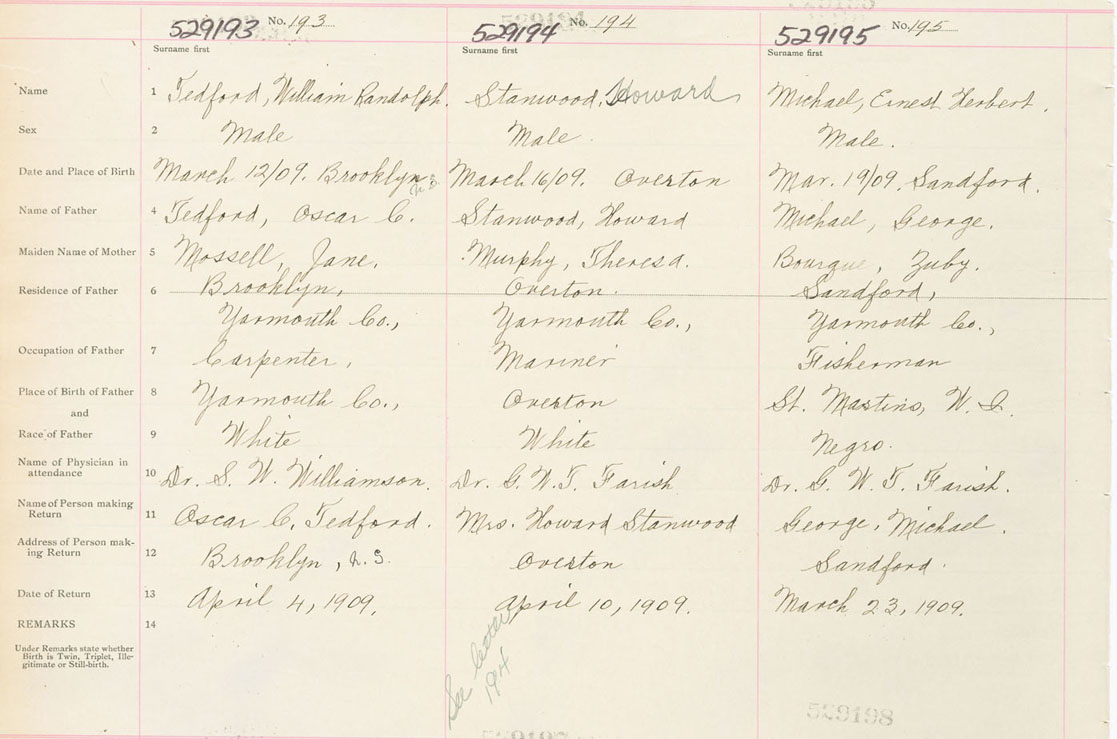 529193 No. 193 529194 No. 194 529195 No. 195
Surname first Surname first Surname first
Name 1 Tedford, William Randolph. Stanwood, Howard Michael, Ernest Herbert.
Sex 2 Male Male. Male.
Date and Place of Birth March 12/09. Brooklyn N.S March 16/09. Overton Mar. 19/09. Sandford.
Name of Father 4 Tedford, Oscar C. Stanwood, Howard Michael, George.
Maiden Name of Mother 5 Mossell, Jane. Murphy, Theresa. Bourque, Zuby.
Residence of Father 6 Brooklyn, Overton. Sandford,
Yarmouth Co., Yarmouth Co., Yarmouth Co.,
Occupation of Father 7 Carpenter, Mariner Fisherman
Place of Birth of Father 8 Yarmouth Co., Overton St. Martins, W. I.
and
Race of Father 9 White White Negro.
Name of Physician in
attendance 10 Dr. S. W. Williamson. Dr. G. W. T. Farish Dr. G. W. T. Farish.
Name of Person making
Return 11 Oscar C. Tedford. Mrs. Howard Stanwood George, Michael.
Address of Person mak-
ing Return 12 Brooklyn, N.S. Overton Sandford.
Date of Return 13 April 4, 1909. April 10, 1909. March 23, 1909.
REMARKS 14
Under Remarks state whether
Birth is Twin, Triplet, Ille-
gitimate or Still-birth.
See letter
194
529198